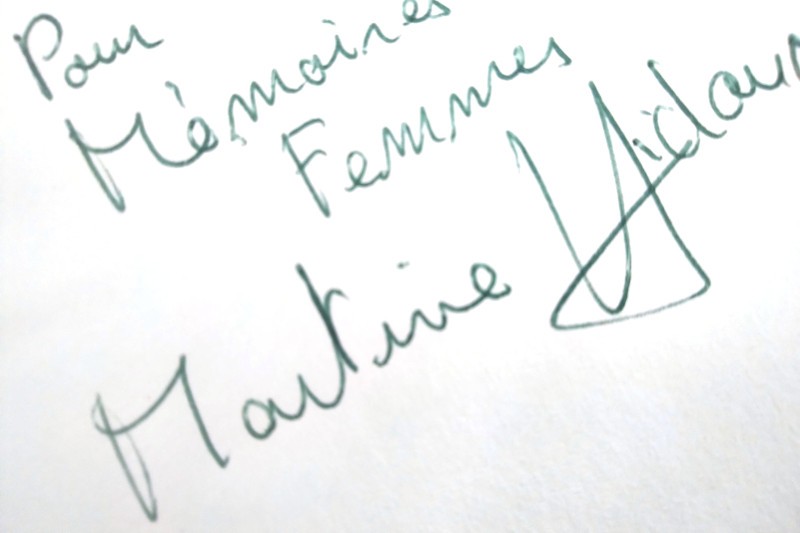 Pour
Mémoires
Femmes
Martine